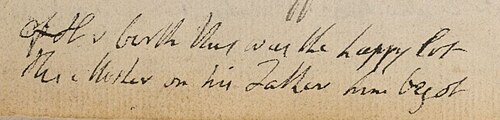 Of His birth thus was the happy lot
His Mother on his Father him begot